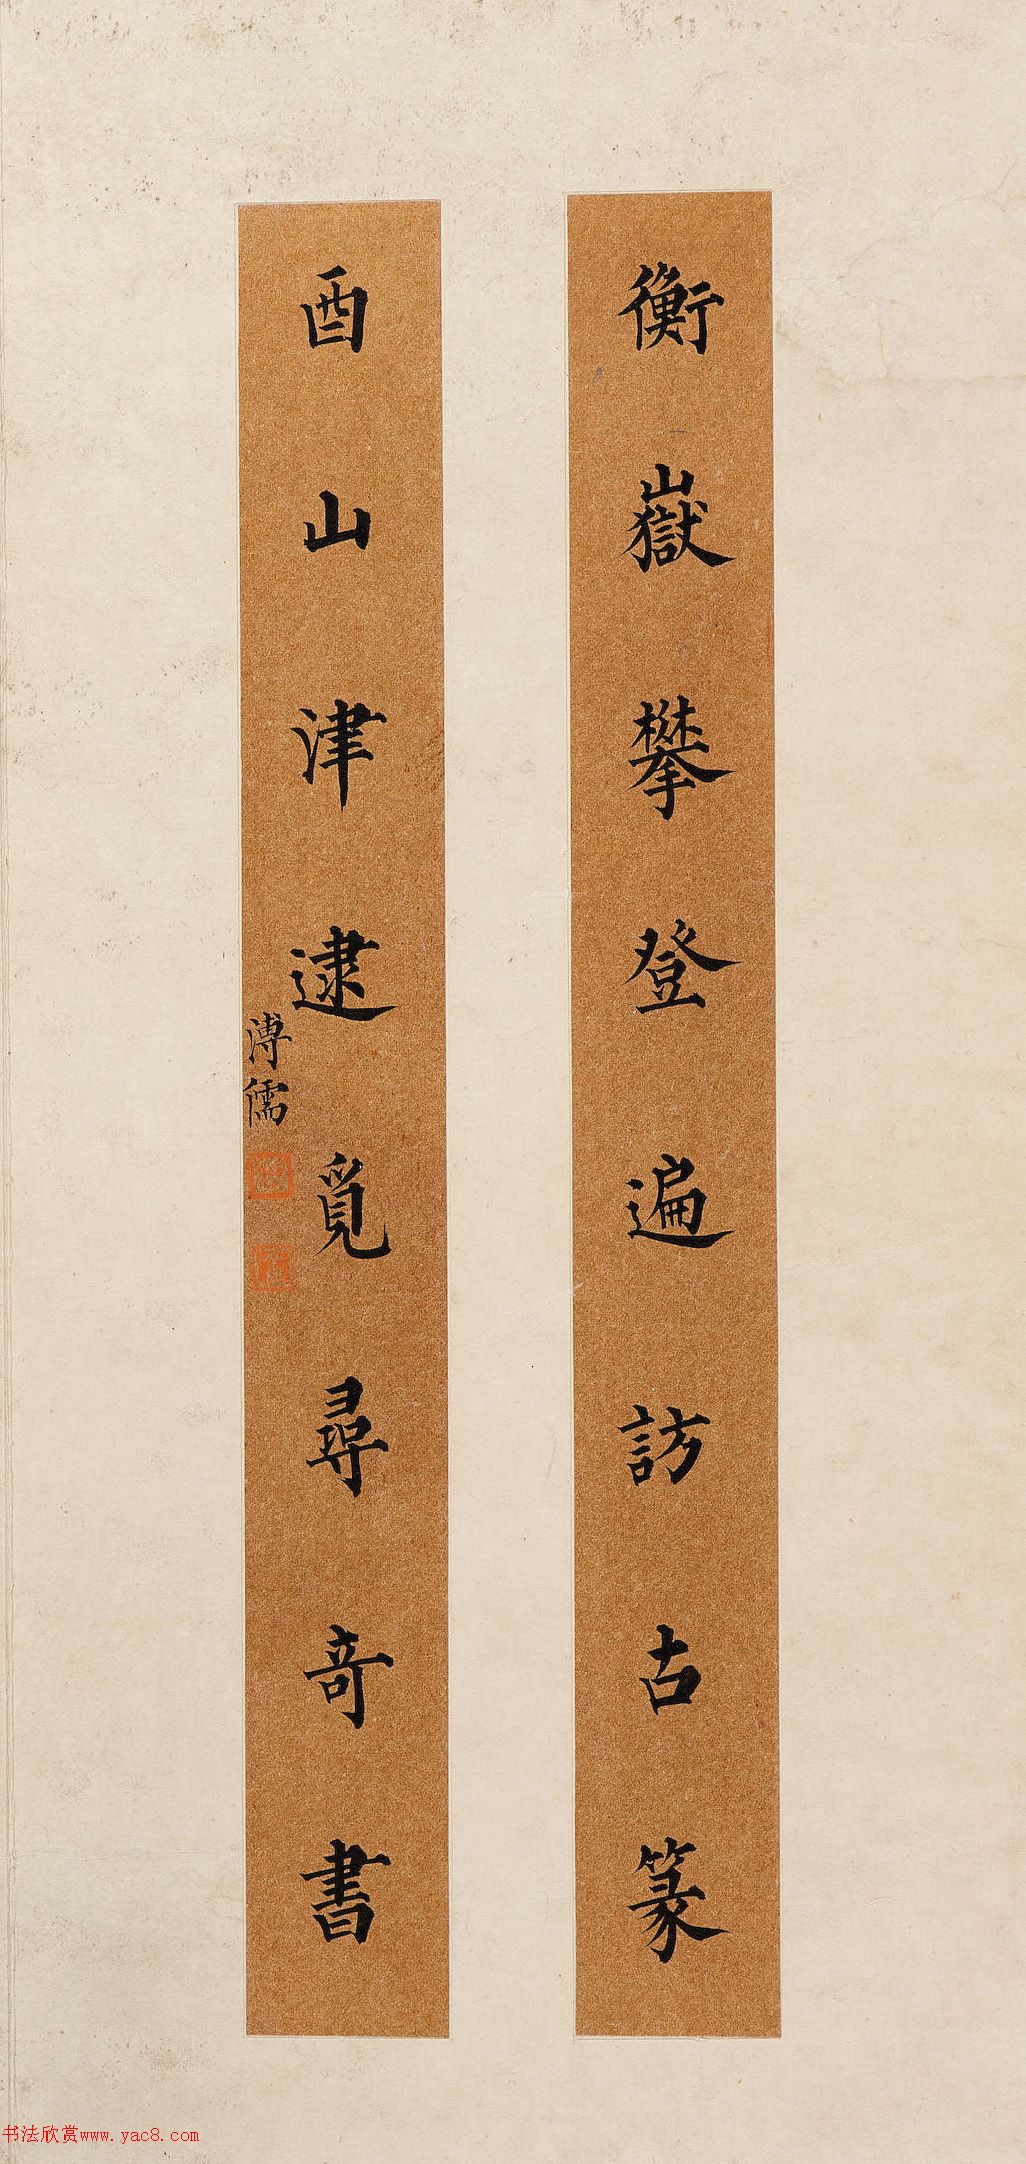 衡嶽攀登遍訪古篆
酉山津逮覓尋奇書
溥儒
书法欣赏www.yac8.com